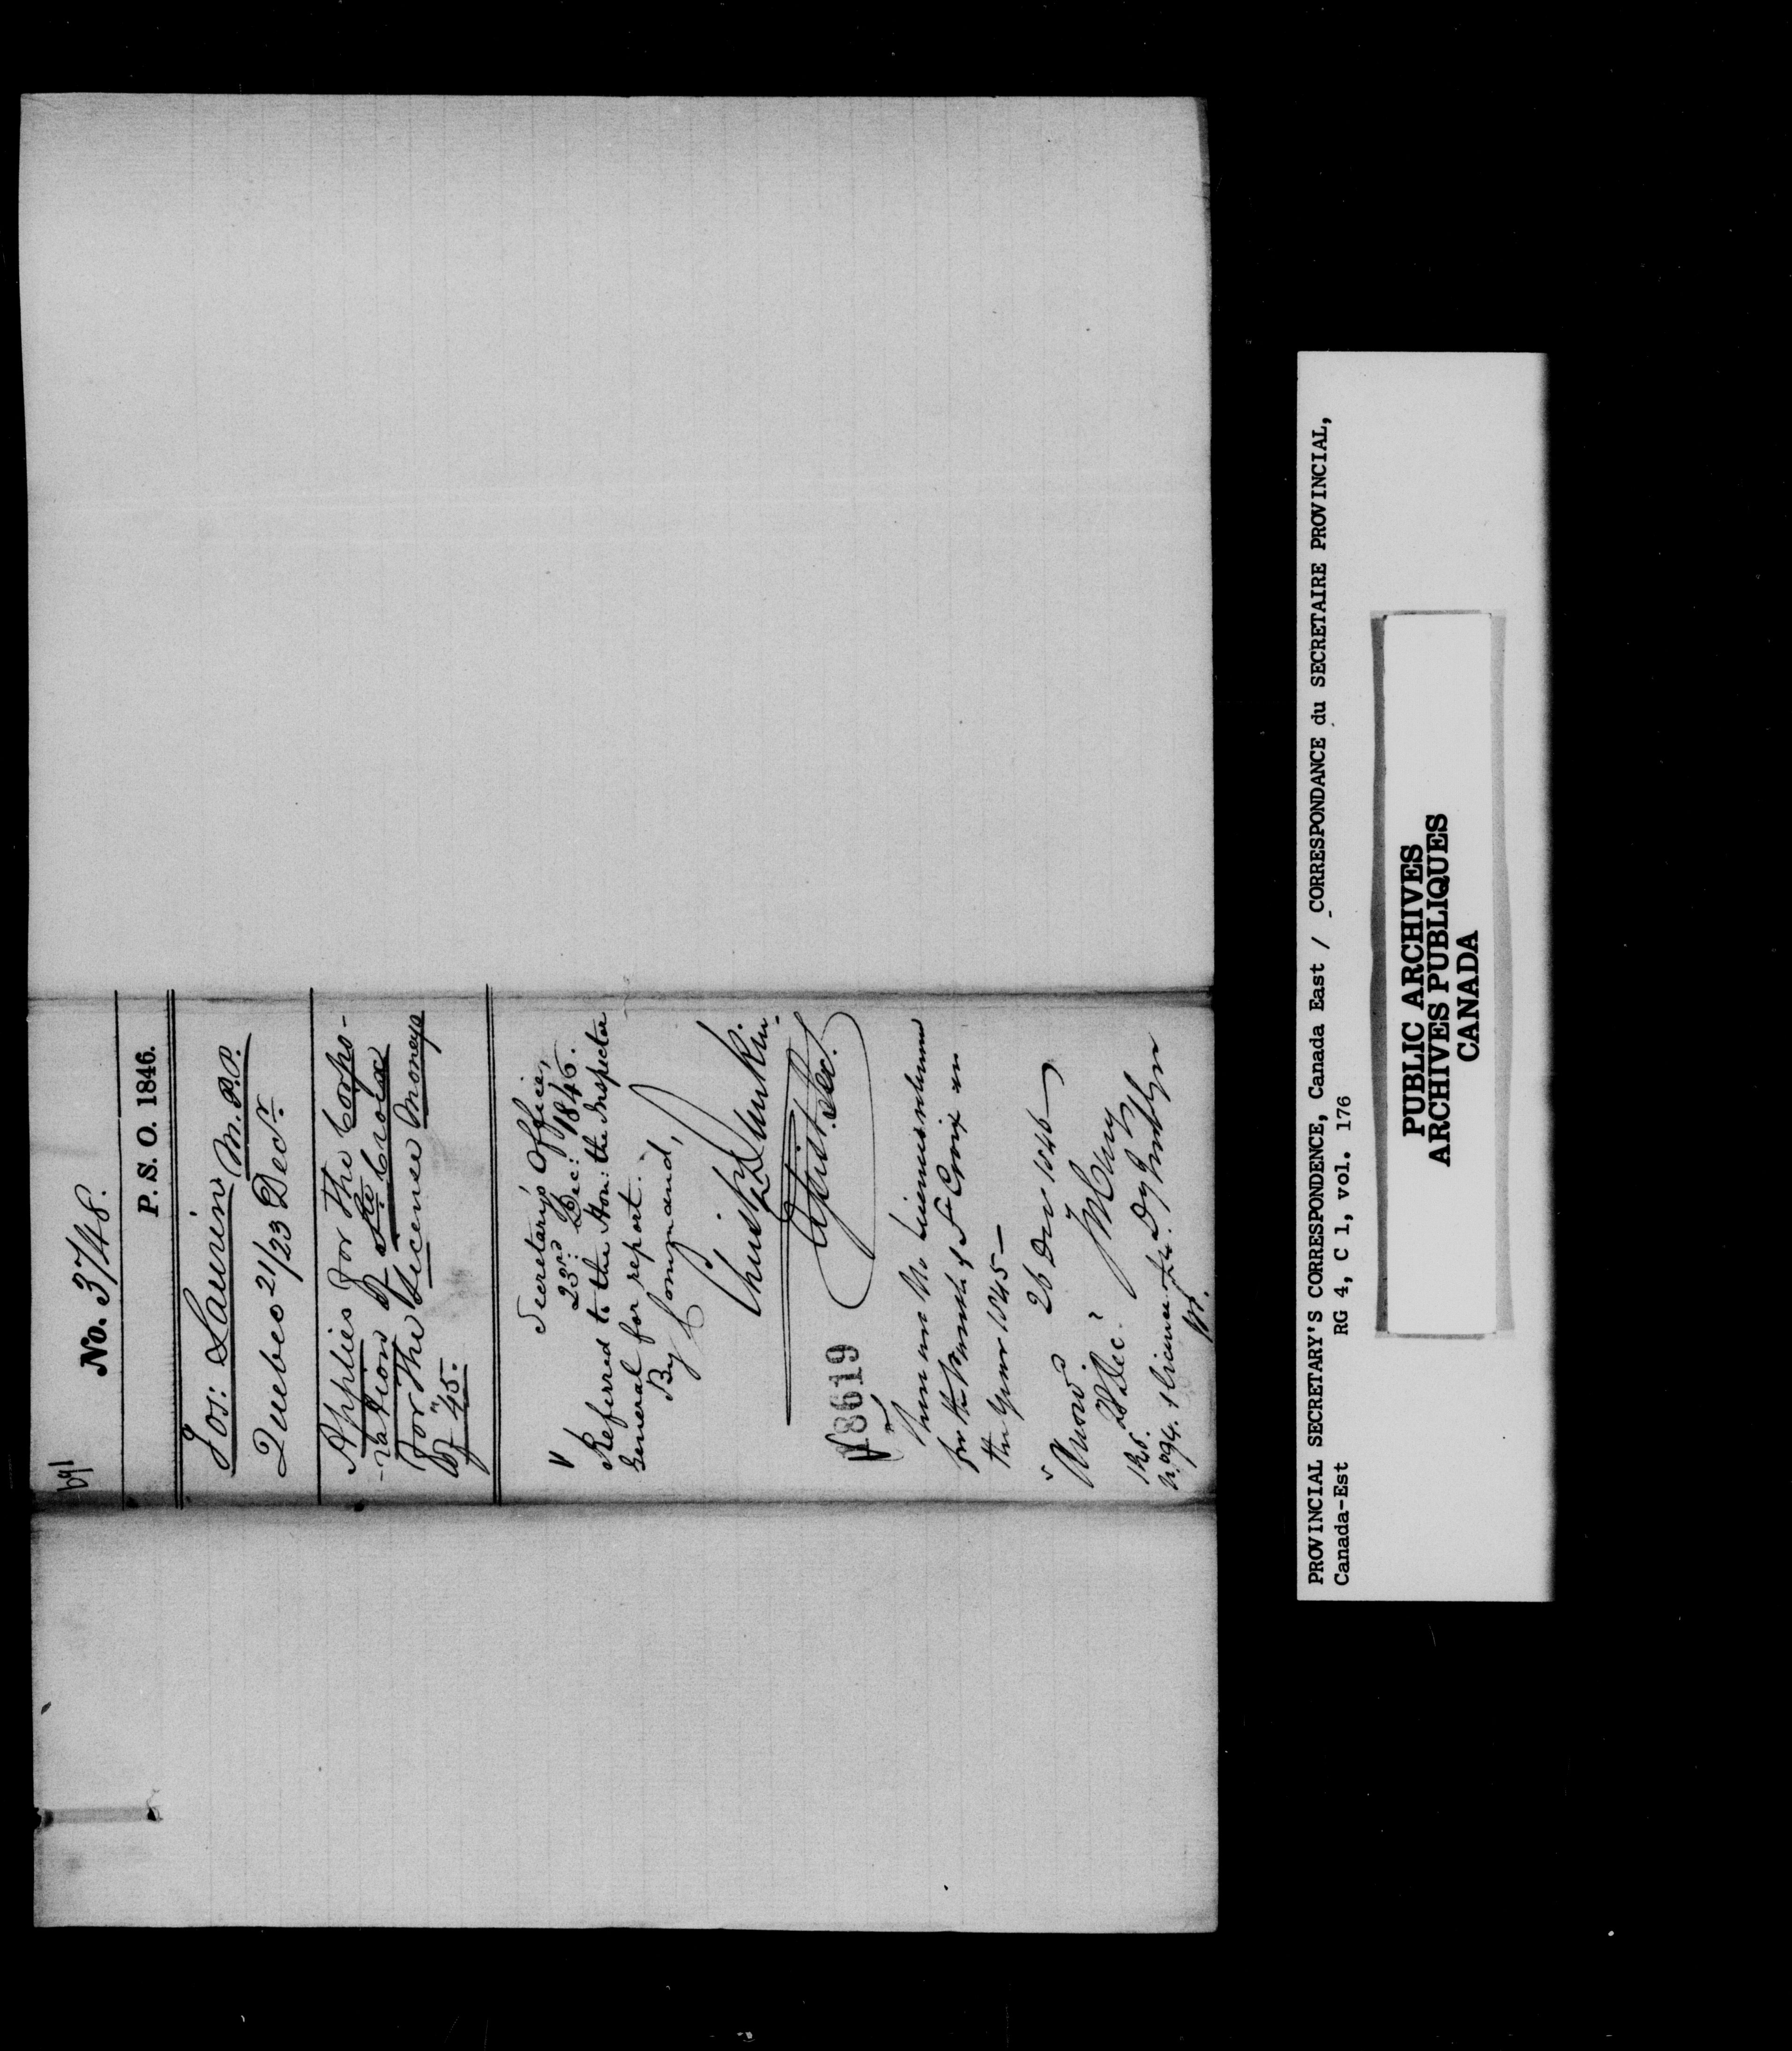 No. 3748.
P. S. O. 1846.
Jos: Laurin M.P.P.
Quebec 21/23 Decr.
Applies for the Corpo-
-ration of Ste Croix
for the License Moneys
of "45.
Secretary's Office,
23rd: Dec: 1846.
Referred to the Hon: the Inspector
General for report.
By Command,
Christ Dunkin
Asst. Sec.
18619
There were no Licences
for the Parish of St Croix in
the year 1845—
26 Dec 1846
Answd
28 Dec.
1846.
Dy
PROVINCIAL SECRETARY'S CORRESPONDENCE, Canada East / CORRESPONDANCE du SECRETAIRE PROVINCIAL,
Canada-Est RG 4, C 1, vol. 176
PUBLIC ARCHIVES
ARCHIVES PUBLIQUES
CANADA